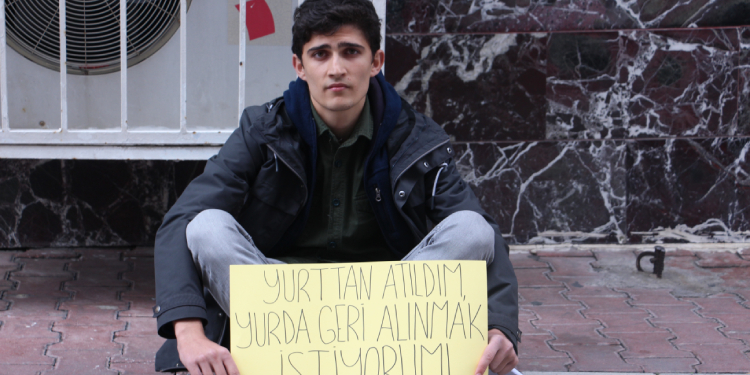 YURTTAN ATILDIM,
YURDA GERİ ALINMAK
İSTİYORUM!